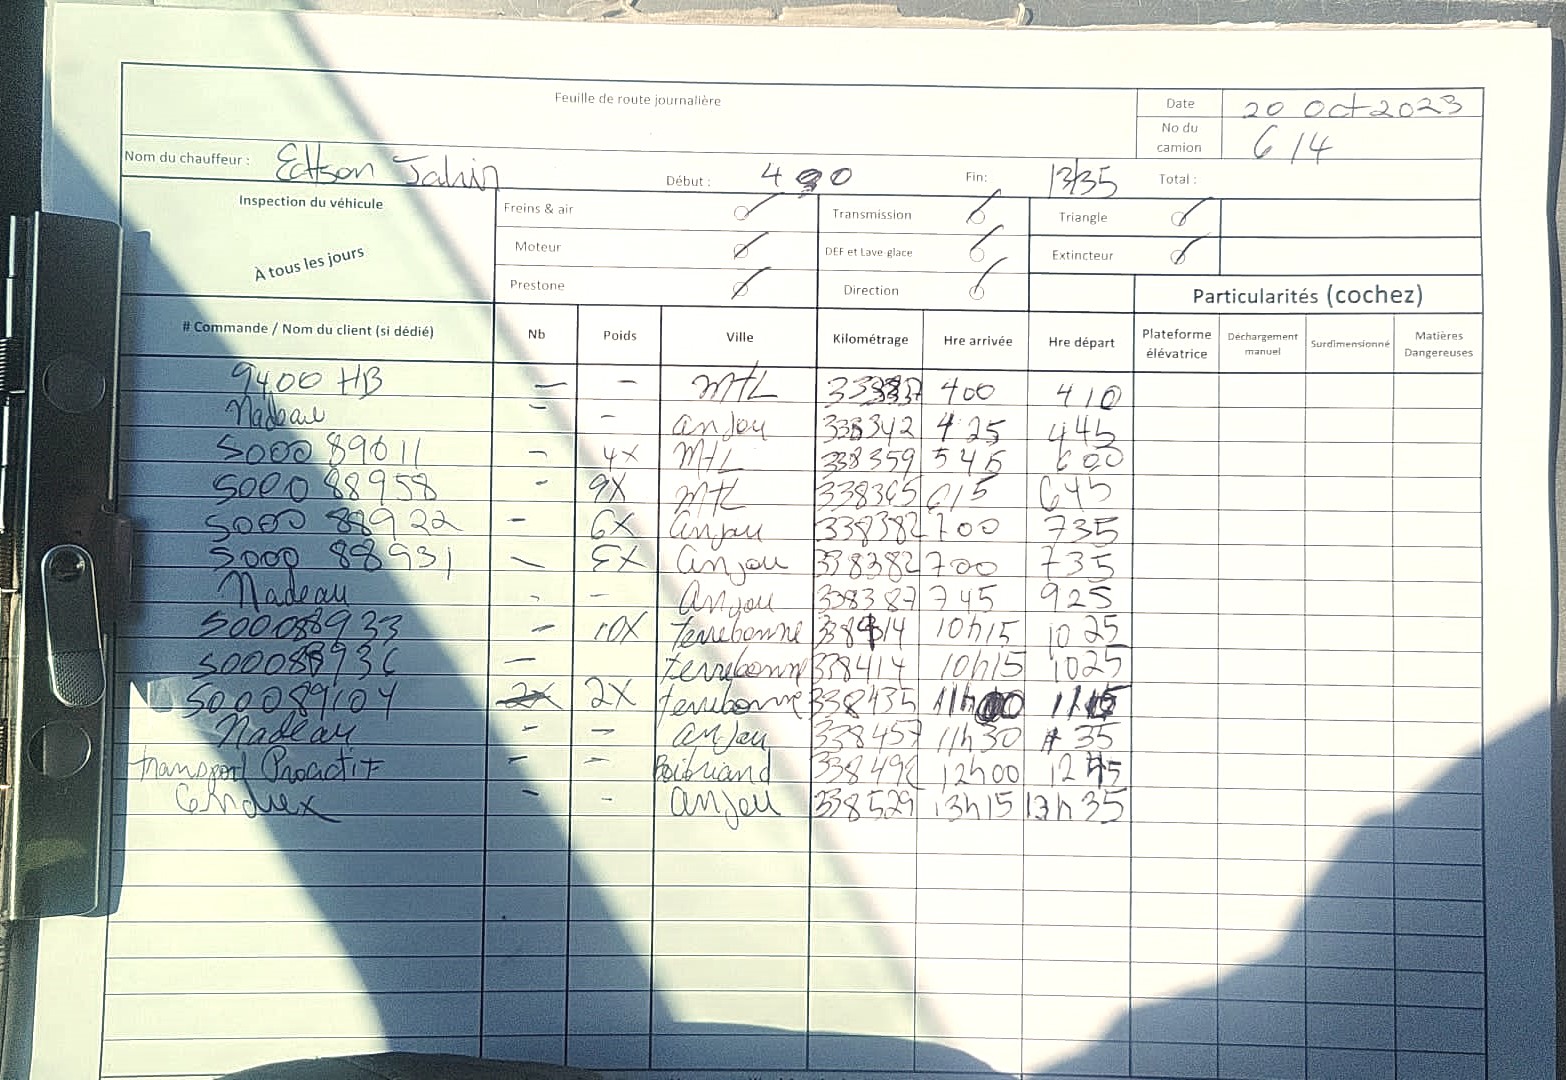 Feuille de route journalière
Date 20 Oct 2023
No du camion 614
Nom du chauffeur : Edtson Jahin Début : 400 Fin: 13h35 Total :
Inspection du véhicule
À tous les jours
Freins & air Transmission Triangle
Moteur DEF et Lave-glace Extincteur
Prestone Direction
Particularités (cochez)
# Commande / Nom du client (si dédié) Nb Poids Ville Kilométrage Hre arrivée Hre départ Plateforme élévatrice Dechargement manuel Surdimensionné Matières Dangereuses
9400 HB – – MtL 400 410
Nadeau – – anjou 338342 425 445
5000 89011 – 4x MtL 338359 545 600
5000 88958 – 9X MtL 338365 615 645
5000 88922 – 6X anjou 338382 700 735
5000 88931 – 5X anjou 338382 700 735
Nadeau - – anjou 338387 745 925
500088933 – 10X terrebonne 338414 10h15 1025
500088936 – terrebonne 338414 10h15 1025
500089104 2x 2X terrebonne 338435 11h00 1115
Nadeau – – anjou 338457 11h30 35
transport Proactif – – Boibriand 12h00 1245
– - anjou 338529 13h15 13h35